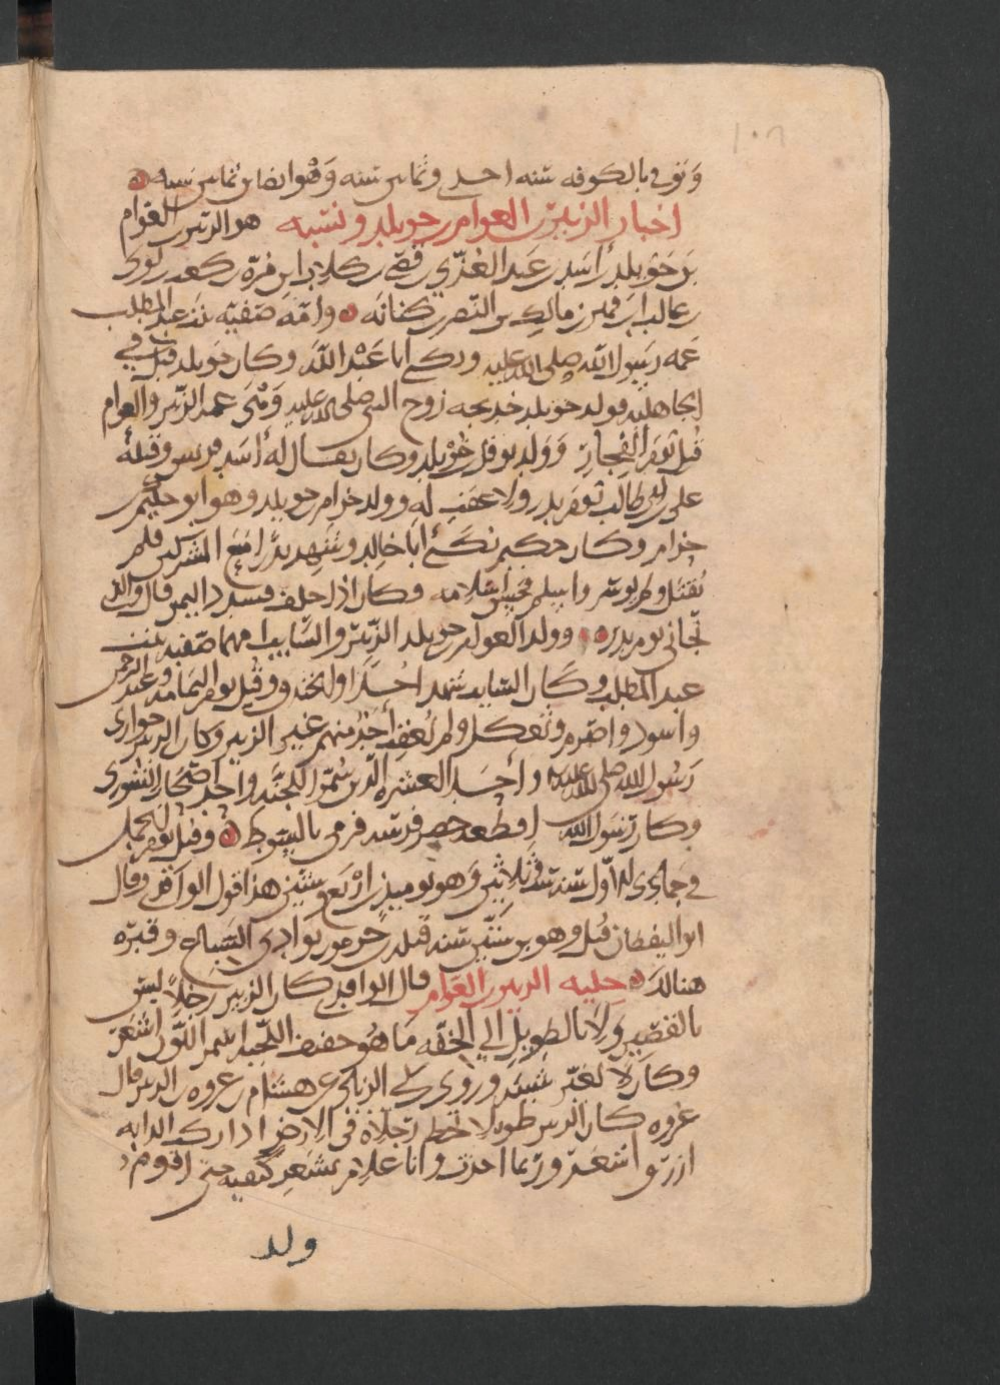 وتوفي بالكوفه سنه احدى وثمانين سنه وهو ابن ثمانين سنه
اخبار الزبير بن العوام بن خويلد ونسبه هو الزبير بن العوام
بن خويلد بن اسد بن عبد العزي بن قصي بن كلاب ابن مرة بن كعب بن لوى
بن غالب ابن فهر بن مالك بن النضر بن كنانه وامه صفيه بنت عبد المطلب
عمه رسول الله صلى الله عليه ويكنى ابا عبد الله وكان خويلد قتل في
الجاهليه فولد خويلد خديجه زوج النبي صلى الله عليه وهي عمه الزبير والعوام
قتل يوم الفجار وولد نوفل بن خويلد وكان يقال له اسد قريش وقتله
علي بن ابي طالب يوم بدر ولا عقب له وولد حزام بن خويلد وهو ابو حكيم بن
حزام وكان حكيم يكنى ابا خالد وشهد بدرا مع المشركين فلم
يقتل ولم يوسر واسلم فحسن اسلامه وكان اذا حلف فشدد اليمين قال والذي
نجاني يوم بدر وولد العوام بن خويلد الزبير والسايب امهما صفيه بنت
عبد المطلب وكان السايب شهد احدا والخندق وقتل يوم اليمامه وعبد الرحمن
واسود واصرم وبعكل ولم يعقب احد منهم غير الزبير وكان الزبير حواري
رسول الله صلى الله عليه واحد العشره الذين سموا للجنه واحد اصحاب الشورى
وكان رسول الله اقطعه حضر فرسه فرمى بالسوط وقتل يوم الجمل
في جمادى الاول سنه ست وثلاثين وهو يوميذ ابن اربع وستين هذا قول الواقدي وقال
ابو اليقظان قتل وهو بن ستين سنه قتله بن جرموز بوادي السباع وقبره
هنالك حليه الزبير بن العوام قال الواقدي كان الزبير رجلا ليس
بالقصير ولا بالطويل الى الخفه ما هو خفيف اللحيه اسمر اللون اشعر
وكان لا يغير شيبه وروى بن ابي الزناد عن هشام بن عروه بن الزبير قال
عروه كان الزبير طويلا تخط رجلاه في الارض اذا ركب الدابه
ازرق اشعر وربما اخذت وانا غلام بشعر كتفيه حتى اقوم
ولد